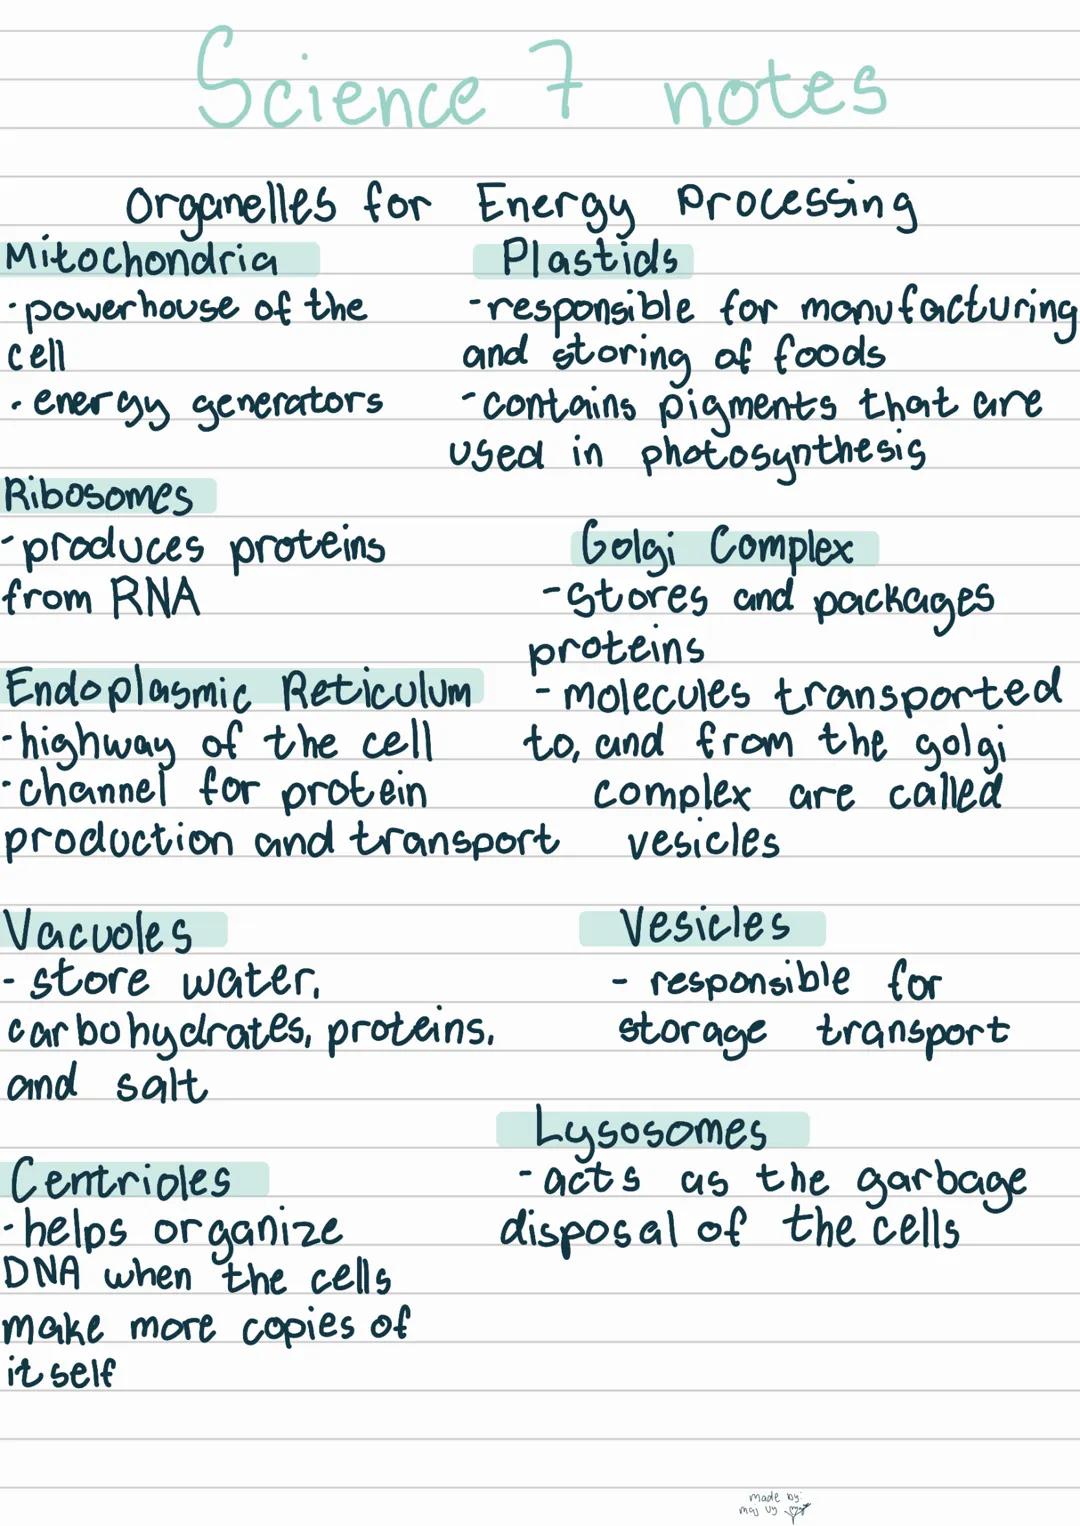 Science 7 notes
Organelles for Energy Processing
Mitochondria
·powerhouse of the
cell
·energy generators
Plastids
-responsible for manufacturing
and storing of foods
-contains pigments that are
used in photosynthesis
Ribosomes
-produces proteins
from RNA
Golgi Complex
-stores and packages
proteins
-molecules transported
to, and from the golgi
complex are called
vesicles
Endoplasmic Reticulum
-highway of the cell
·channel for protein
production and transport
Vacuoles
- store water,
carbohydrates, proteins,
and salt
Vesicles
- responsible for
storage transport
Lysosomes
-acts as the garbage
disposal of the cells
Centrioles
-helps organize
DNA when the cells
make more copies of
itself
made by: